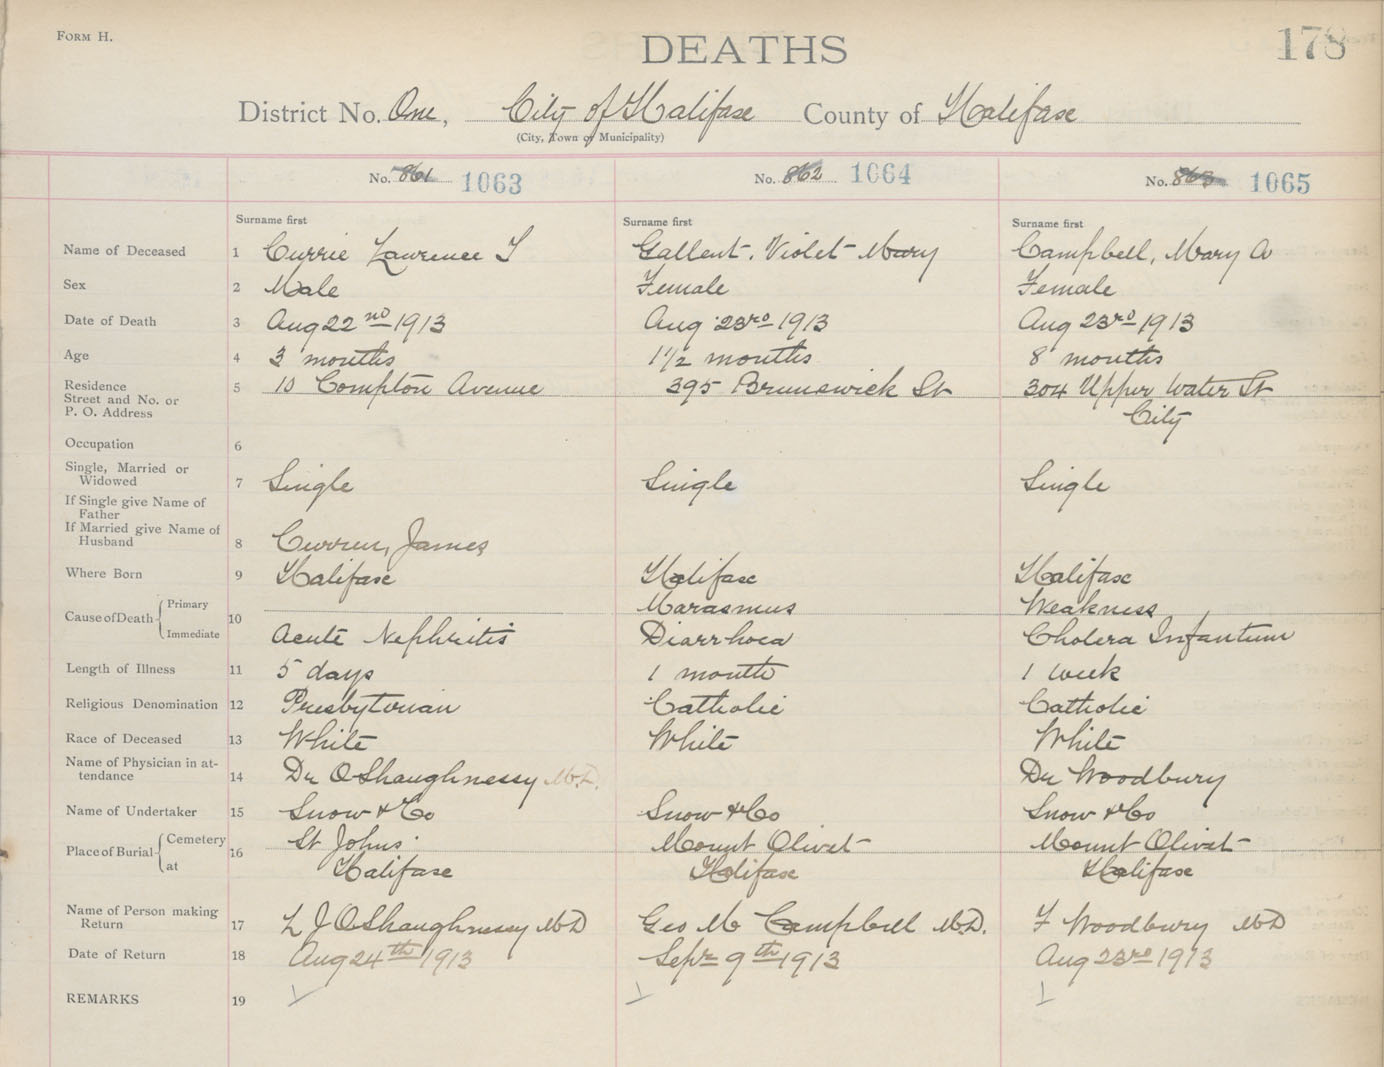 FORM H.
DEATHS
178
District No. One, City of Halifax County of Halifax
(City, Town or Municipality)
No. 861 1063 No. 862 1064 No. 863 1065
Surname first Surname first Surname first
Name of Deceased 1 Currie Lawrence J Gallent, Violet Mary Campbell, Mary A
Sex 2 Male Female Female
Date of Death 3 Aug 22nd 1913 Aug 23rd 1913 Aug 23rd 1913
Age 4 3 months 1 1/2 months 8 months
Residence 5 10 Compton Avenue 395 Brunswick St 304 Upper Water St
Street and No. or
P. O. Address City
Occupation 6
Single, Married or
Widowed 7 Single Single Single
If Single give Name of
Father
If Married give Name of
Husband 8 Curren, James
Where Born 9 Halifax Halifax Halifax
Cause of Death Primary 10 Marasmus Weakness
Immediate Acute Nephritis Diarrhoea Cholera Infantum
Length of Illness 11 5 days 1 month 1 week
Religious Denomination 12 Presbyterian Catholic Catholic
Race of Deceased 13 White White White
Name of Physician in at-
tendance 14 Dr O'Shaughnessy M.D. Dr Woodbury
Name of Undertaker 15 Snow & Co Snow & Co Snow & Co
Place of Burial Cemetery 16 St Johns Mount Olivet Mount Olivet
at Halifax Halifax Halifax
Name of Person making
Return 17 L J O'Shaughnessy MD Geo M Campbell M.D. F Woodbury MD
Date of Return 18 Aug 24th 1913 Sepr 9th 1913 Aug 23rd 1913
REMARKS 19